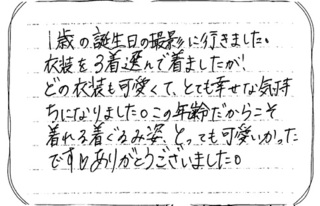 1歳の誕生日の撮影に行きました。
衣装を3着選んで着ましたが、
どの衣装も可愛くて、とても幸せな気持
ちになりました。この年齢だからこそ
着れる着ぐるみ姿、とっても可愛いかった
です。ありがとうございました。